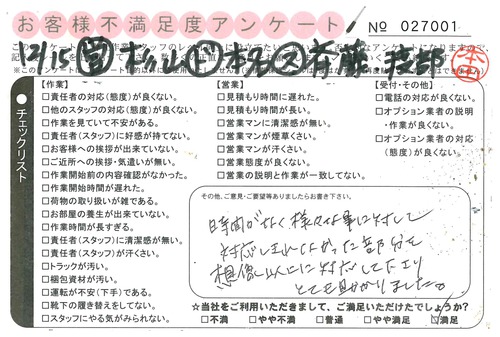 お客様不満足度アンケート
№ 027001
12/15
【作業】
□責任者の対応(態度)が良くない。
□他のスタッフの対応(態度)が良くない。
□作業を見ていて不安がある。
□責任者(スタッフ)に好感が持てない。
□お客様への挨拶が出来ていない。
□ご近所への挨拶・気遣いが無い。
□作業開始前の内容確認がなかった。
□作業開始時間が遅れた。
□荷物の取り扱いが雑である。
□お部屋の養生が出来ていない。
□作業時間が長すぎる。
□責任者(スタッフ)に清潔感が無い。
□責任者(スタッフ)が汗くさい。
□トラックが汚い。
□梱包資材が汚い。
□運転が不安(下手)である。
□靴下の履き替えをしてない。
□スタッフにやる気がみられない。
【営業】
□見積もり時間に遅れた。
□見積もり時間が長い。
□営業マンに清潔感が無い。
□営業マンが煙草くさい。
□営業マンが汗くさい。
□営業態度が良くない。
□営業の説明と作業が一致してない。
【受付・その他】
□電話の対応が良くない。
□オプション業者の説明
・作業が良くない。
□オプション業者の対応
(態度)が良くない。
チェックリスト
その他、ご意見・ご要望等ありましたらお書き下さい。
時間がなく様々な事に対して
対応しきれなかった部分を
想像以上に対応して下さり
とても助かりました。
☆当社をご利用いただきまして、ご満足いただけたでしょうか?
□不満 □やや不満 □普通 □やや満足 □満足